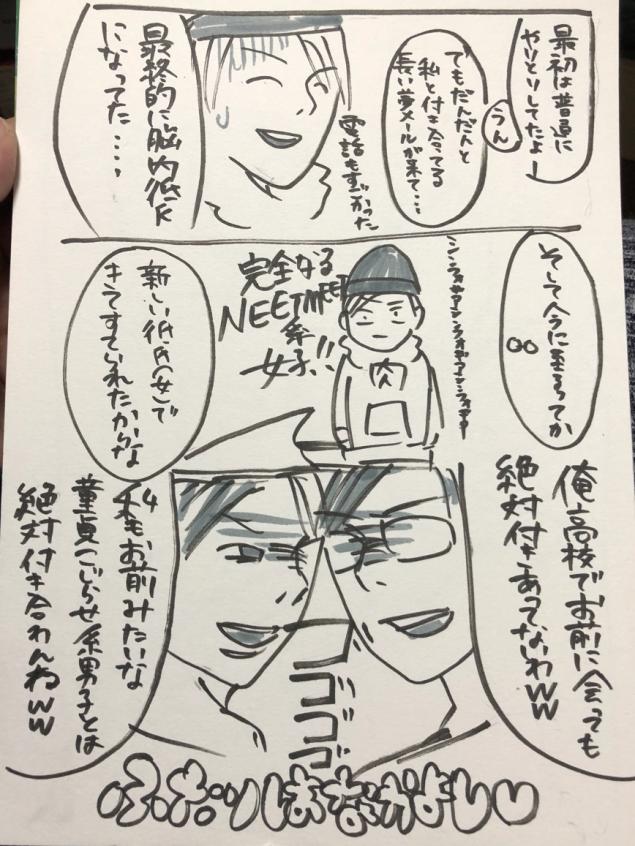 最初は普通に
やりとりしてたよー
うん
でもだんだんと
私と付き合ってる
長い夢メールが来て…
電話もすごかった
最終的に脳内彼氏
になってた…
そして今に至るってか
シンフォギアーシンフォギアーシンフォギアー
完全なる
NEET MEET
系
女子!!
新しい彼氏(女)で
きてすていれたからな
俺高校でお前に会っても
絶対付きあってないわWW
私もお前みたいな
童貞こじらせ系男子とは
絶対付き合わんねWW
ゴゴゴゴ
ふたりはなかよし